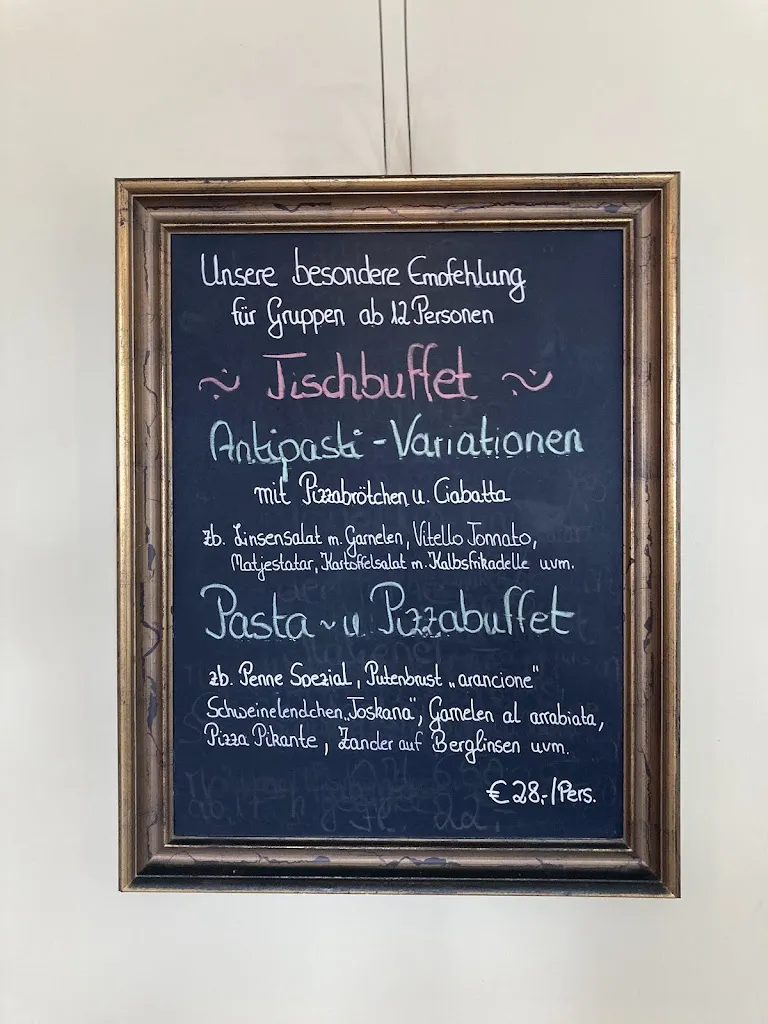 Unsere besondere Empfehlung
für Gruppen ab 12 Personen
~ Tischbuffet ~
Antipasti - Variationen
mit Pizzabrötchen u. Ciabatta
zb. Linsensalat m. Garnelen, Vitello Tonnato,
Matjestatar, Kartoffelsalat m. Kalbsfrikadelle uvm.
Pasta ~ u Pizzabuffet
zb. Penne Spezial, Putenbrust „arancione"
Schweinelendchen „Toskana", Garnelen al arrabiata,
Pizza Pikante, Zander auf Berglinsen uvm.
€ 28,-/Pers.